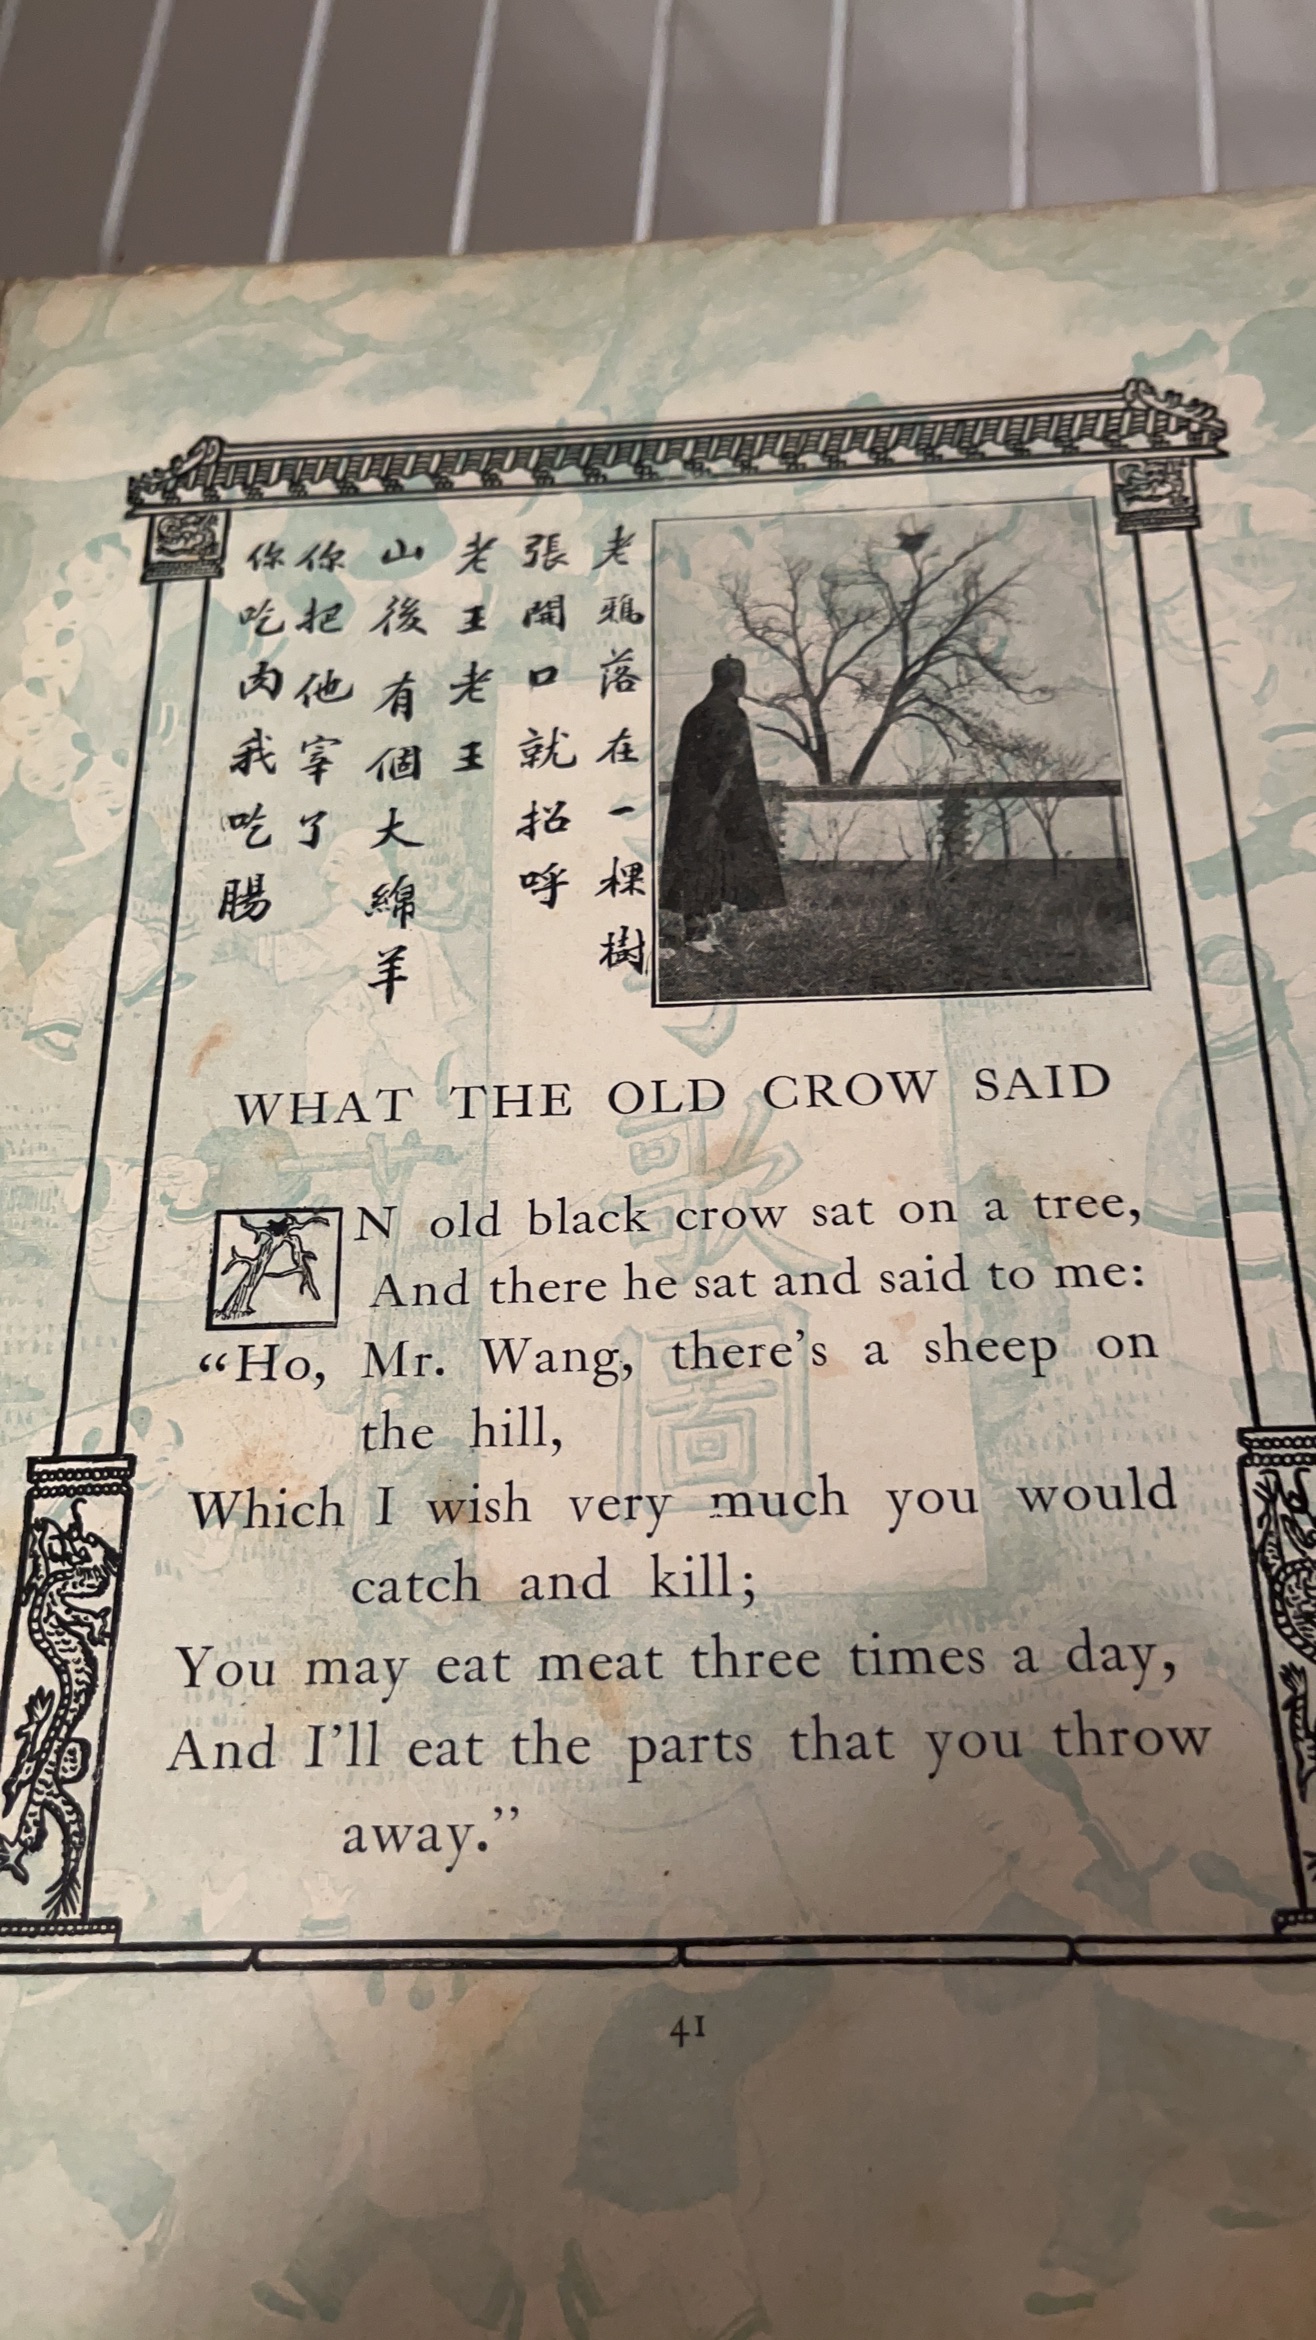 老鴉落在一棵樹
張開口就招呼
老王老王
山後有個大綿羊
你把他宰了
你吃肉我吃腸
WHAT THE OLD CROW SAID
AN old black crow sat on a tree,
And there he sat and said to me:
“Ho, Mr. Wang, there’s a sheep on
the hill,
Which I wish very much you would
catch and kill;
You may eat meat three times a day,
And I’ll eat the parts that you throw
away.”
歌
圖
41